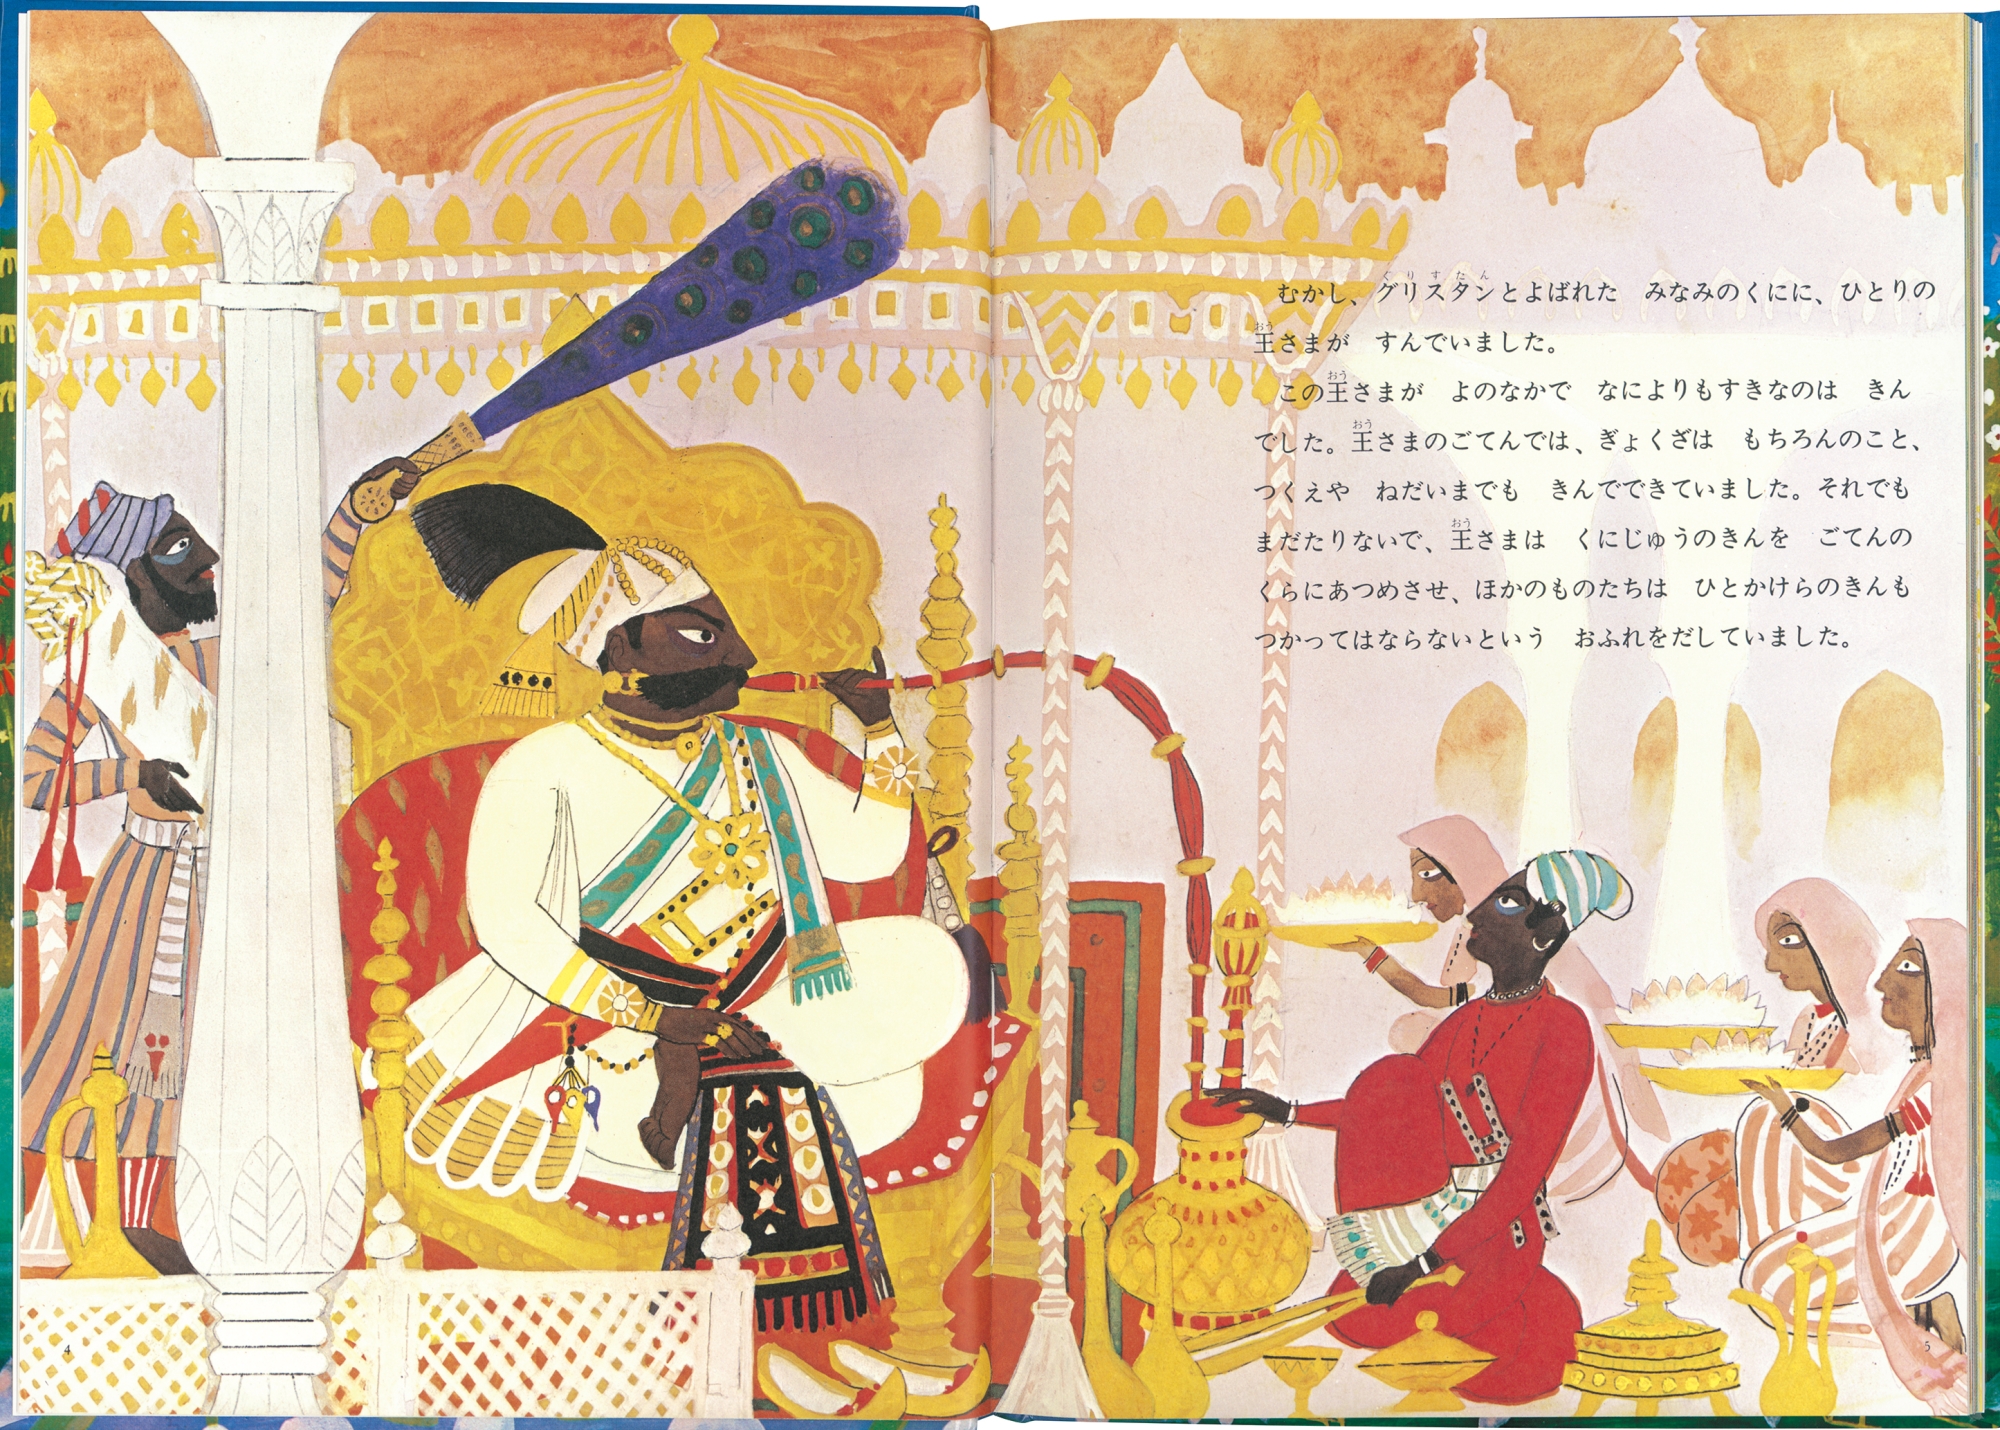 むかし、グリスタンとよばれた　みなみのくにに、ひとりの
王さまが　すんでいました。
この王さまが　よのなかで　なによりもすきなのは　きん
でした。王さまのごてんでは、ぎょくざは　もちろんのこと、
つくえや　ねだいまでも　きんでできていました。それでも
まだたりないで、王さまは　くにじゅうのきんを　ごてんの
くらにあつめさせ、ほかのものたちは　ひとかけらのきんも
つかってはならないという　おふれをだしていました。
4
5